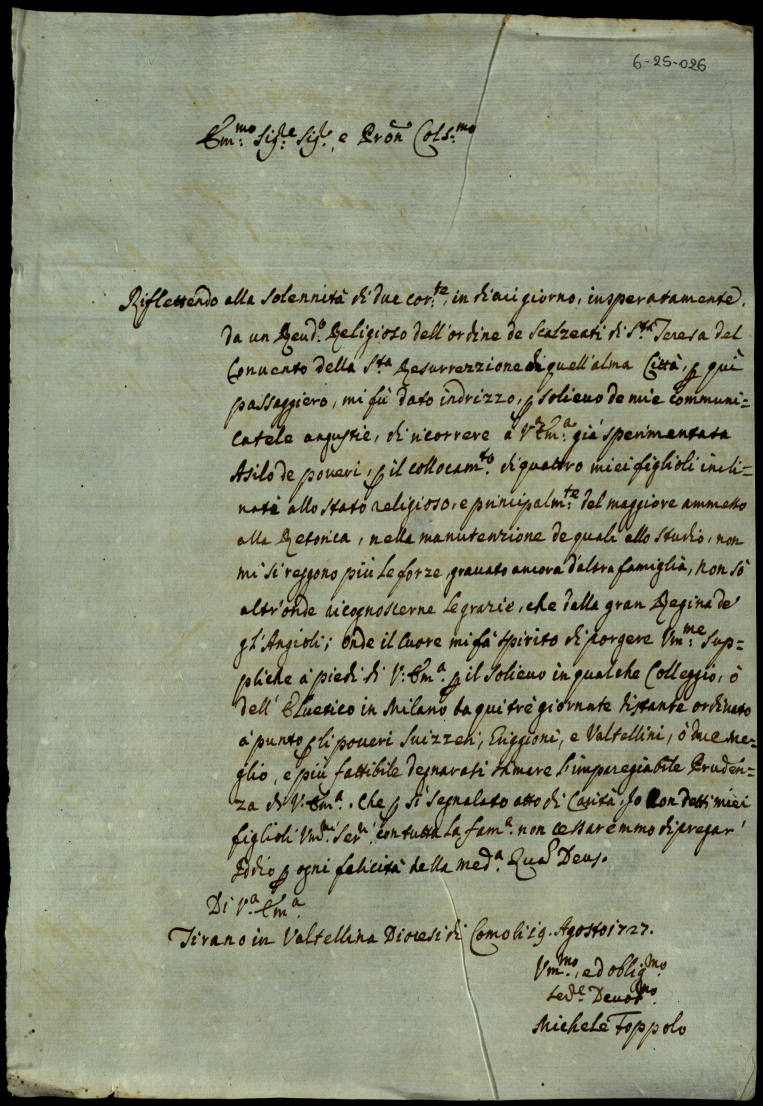 6-25-026
Em.mo Sig.e Sig.r, e Pron Cols.mo
Riflettendo alla solennità di due cor.te, in di aci giorno, insperatamente
da un Reud.o Religioso dell'ordine de Scalzeati di S.ta Teresa del
Conuento della S.ta Resurrezzione di quell'alma Città, p qui
passaggiero, mi fù dato indrizzo, p solieuo de mie communi=
catele angustie, di ricorrere à V.Em.a già sperimentata
Asilo de poueri, p il collocam.to di quattro miei figlioli incli=
nati allo stato religioso, e principalm.te del maggiore ammesso
alla Retorica, nella manutenzione de quali allo studio, non
mi si reggono più le forze, grauato ancora d'altra famiglia, non sò
altr'onde ricognoscerne le grazie, che dalla gran Regina de
gl'Angioli; onde il Cuore mi fà spirito di porgere Vm.me sup=
pliche à piedi di V.Em.a p il solieuo in qualche Colleggio, ò
dell'Eluetico in Milano da qui trè giornate distante ordinato
à punto p li poueri Suizzeri, Griggioni, e Valtellini, ò doue me=
glio, e più fattibile degnarasi l'impareggiabile Pruden=
za di V.Em.a. Che p sì segnalato atto di Carità, Io con detti miei
figlioli Vm.mi Ser.i con tutta la fam.a non cessaremmo di pregar'
Iddio p ogni felicità della med.a Quā Deus.
Di V.a Em.a
Tirano in Valtellina Diocesi di Como li 19. Agosto 1727.
Vm.mo, ed oblig.mo
Ser.e Deuot.mo
Michele Foppolo